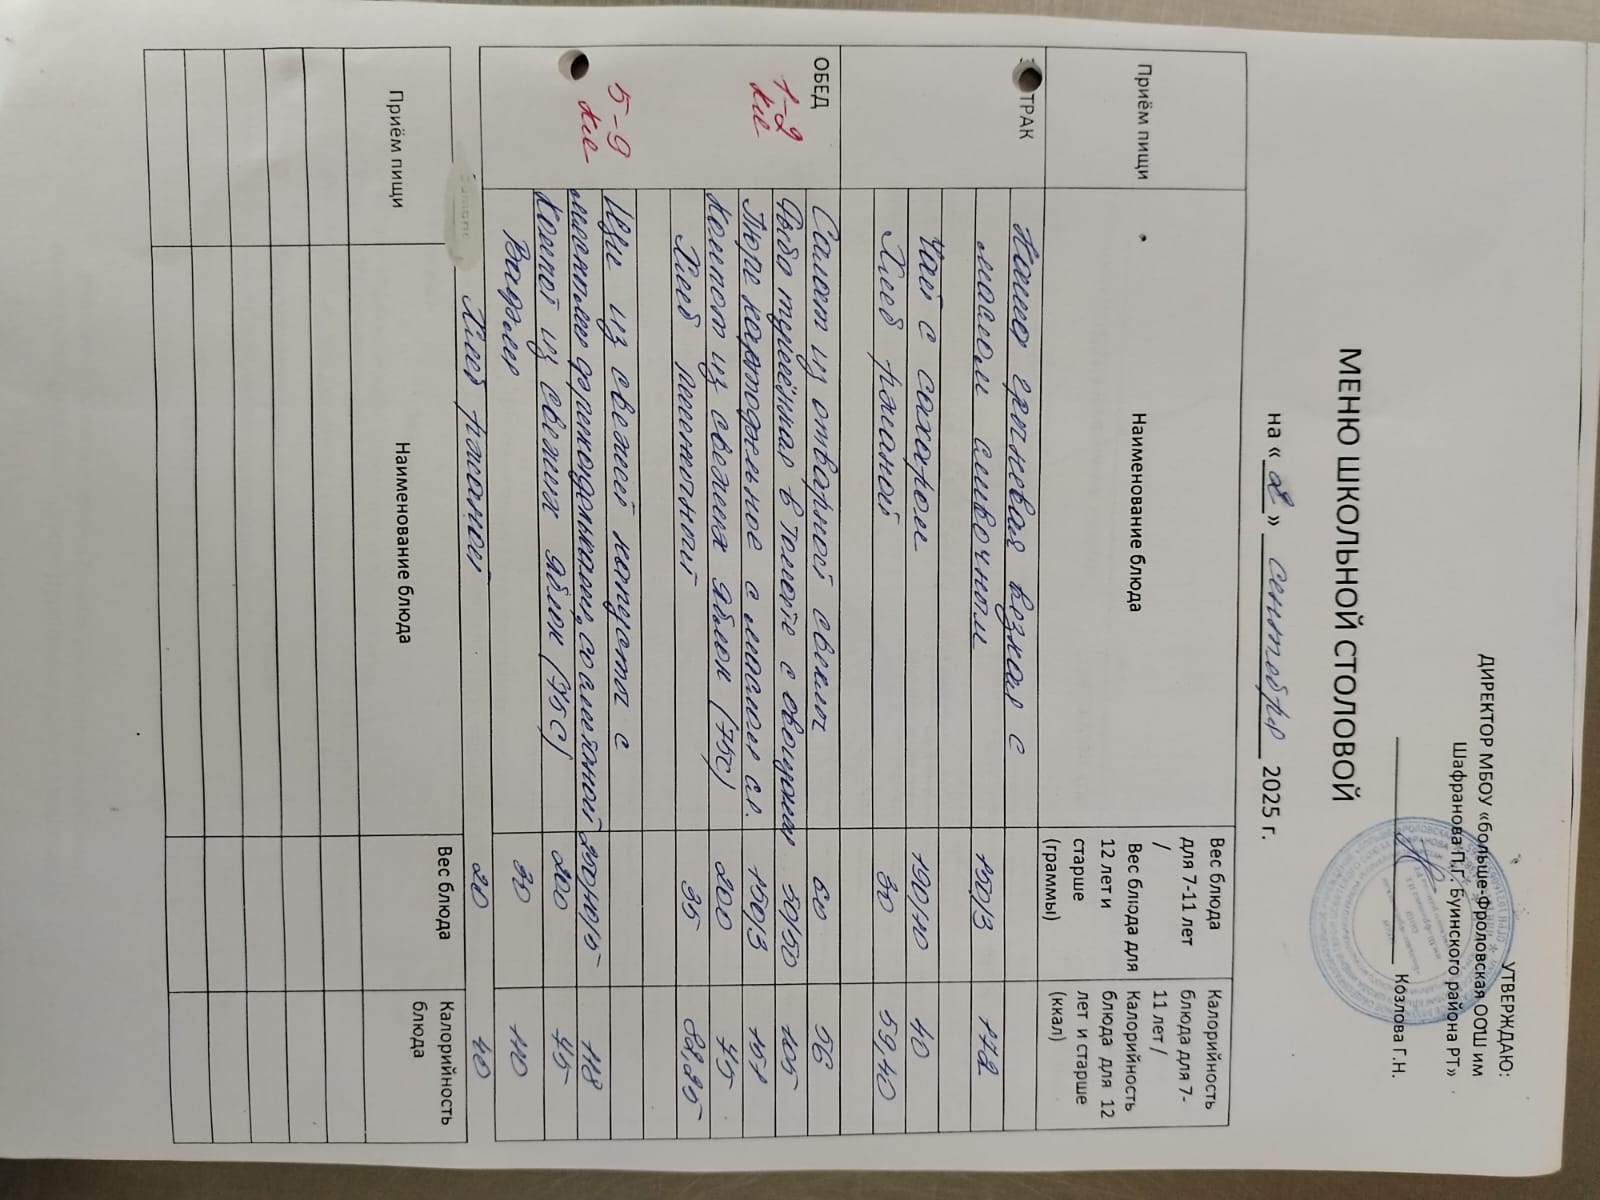 УТВЕРЖДАЮ:
ДИРЕКТОР МБОУ «больше-Фроловская ООШ им
Шафранова П.Г. Буинского района РТ»
Козлова Г.Н.
МЕНЮ ШКОЛЬНОЙ СТОЛОВОЙ
на « 2 » сентября 2025 г.
Приём пищи Наименование блюда Вес блюда для 7-11 лет / Вес блюда для 12 лет и старше (граммы) Калорийность блюда для 7-11 лет / Калорийность блюда для 12 лет и старше (ккал)
ТРАК Каша гречневая вязкая с
маслом сливочным 150/3 172
Чай с сахаром 190/10 40
Хлеб ржаной 30 59,40
ОБЕД Салат из отварной свеклы 60 56
1-2 кл Рыба тушёная в томате с овощами 50/50 105
Пюре картофельное с маслом сл. 150/3 151
Компот из свежих яблок (75С) 200 75
Хлеб пшеничный 35 82,25
5-9 кл Щи из свежей капусты с
мясными фрикадельками, со сметаной 250/10/5 118
Компот из свежих яблок (75С) 200 75
Вафли 30 110
Хлеб ржаной 20 40
Приём пищи Наименование блюда Вес блюда Калорийность блюда